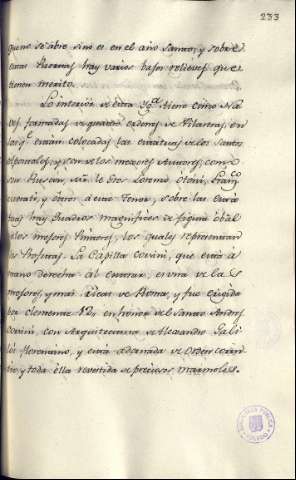 233
que no se abre sino es en el año Santo, y sobre
estas Puertas hay varios bajos relieves que
tienen merito.
Lo interior de esta Ygª. tiene cinco Na-
ves formadas de quatro ordenes de Pilastras, en
las qs. están colocadas las estatuas de los Santos
Apostoles, y son de los mejores Autores, co-
mo Rusconi, Mr. le Gros Lorenzo Otoni, Franco.
y otros á este tenor, sobre las esta-
tuas hay Quadros magnificos de figura obal
de los mejores Pintores, los quales representan
los Profetas. La Capilla Corsini, que está á
mano derecha al entrar, es una de las
mejores, y mas ricas de Roma, y fue erigida
por Clemente 12, en honor de el Santo Andres
Corsini, con Arquitectura de Alexandro Gali-
lei florentino, y está adornada de Orden corin-
tio y toda ella revestida de preciosos marmoles.
BIBLIOTECA PUBLICA
TOLEDO